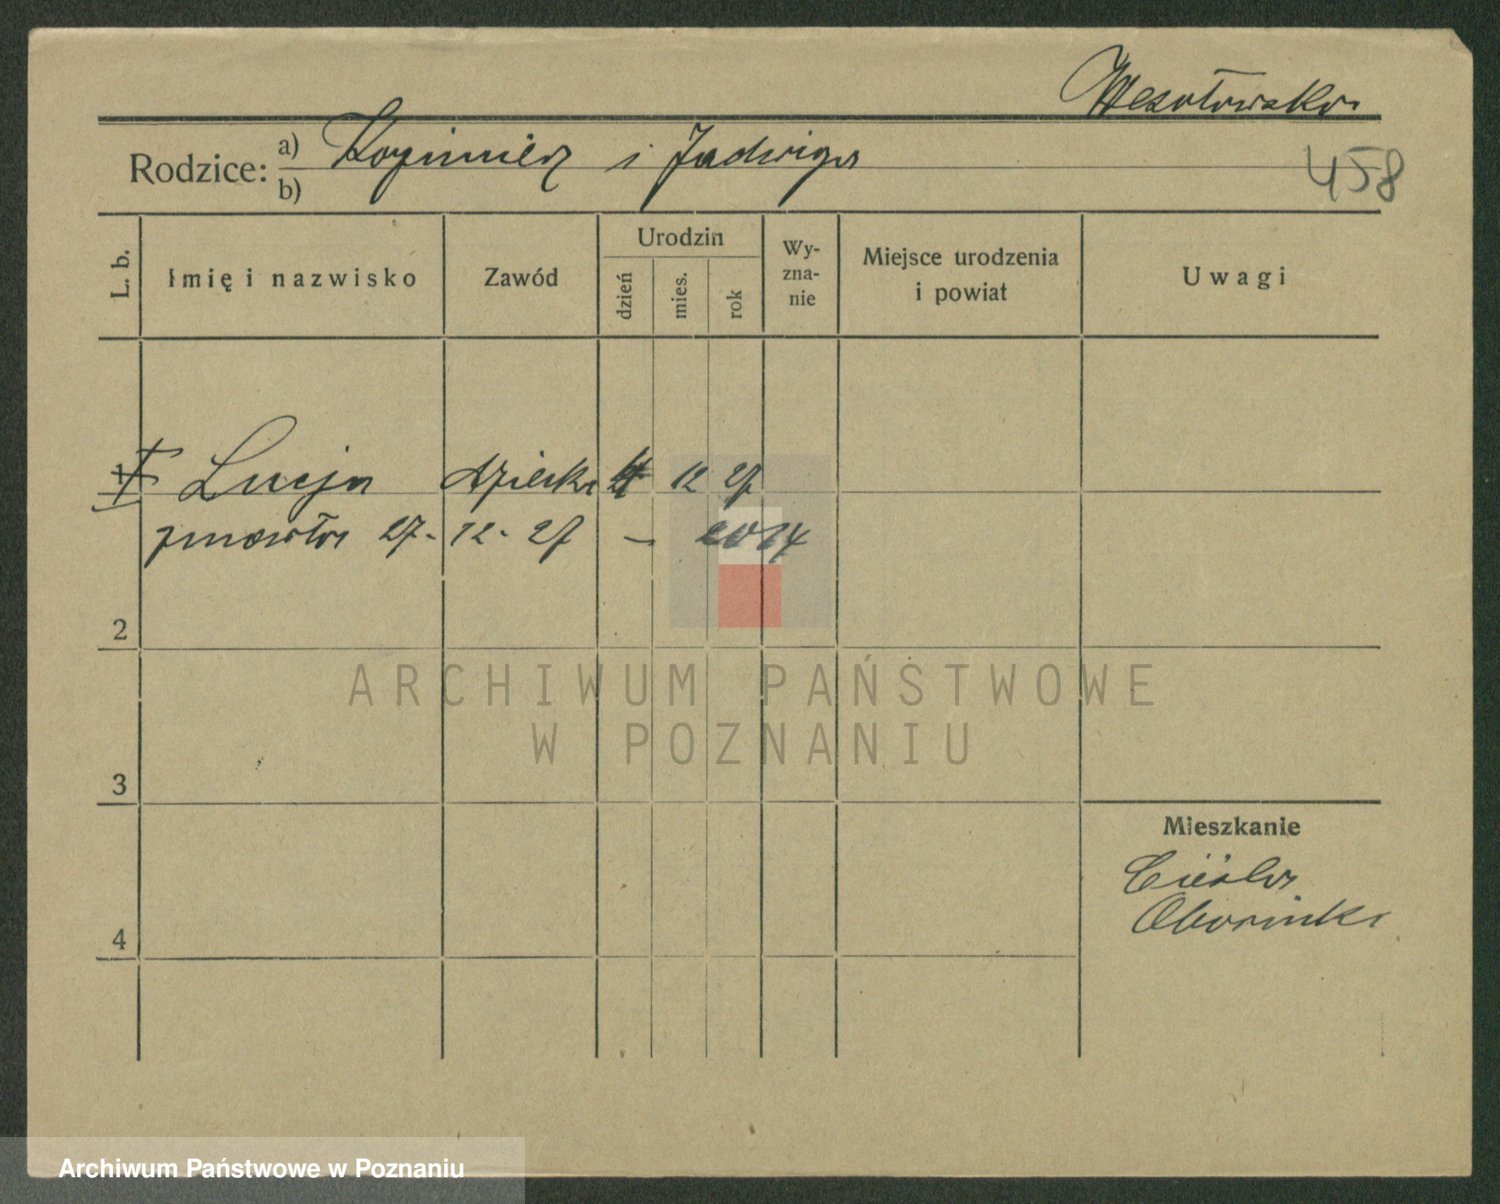 Wesołowska
Rodzice: a) Kazimierz i Jadwiga
b)
458
L. b.
Imię i nazwisko
Zawód
Urodzin
dzień
mies.
rok
Wy-
zna-
nie
Miejsce urodzenia
i powiat
Uwagi
1 Łucja dziecko 12 27
zmarła 27-12-27 —
2
3
4
Mieszkanie
Cieśla
Oborinka
ARCHIWUM PAŃSTWOWE
W POZNANIU
Archiwum Państwowe w Poznaniu